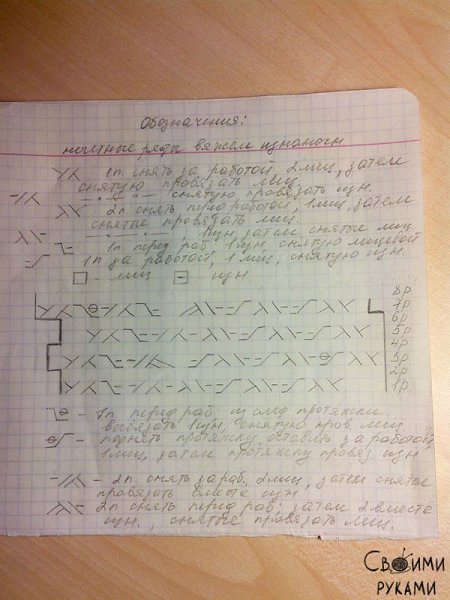 Обозначения:
нечетные ряды вяжем изнаночн
1п снять за работой, 2лиц, затем
снятую провязать лиц.
снятую провязать изн.
2п снять перед работой, 1лиц, затем
снятые провязать лиц
1изн, затем снятые лиц
1п перед раб, 1изн, снятую лицевой
1п за работой, 1лиц, снятую изн.
- лиц - изн.
8р
7р
6р
5р
4р
3р
2р
1р
- 1п перед раб, из протяжки
вывязать 1изн, снятую пров лиц
- поднять протяжку, оставить за работой,
1лиц, затем протяжку провяз изн
- 2п. снять за раб. 2лиц, затем снятые
провязать вместе изн.
- 2п снять перед раб, затем 2вместе
изн., снятые провязать лиц.
Своими
руками